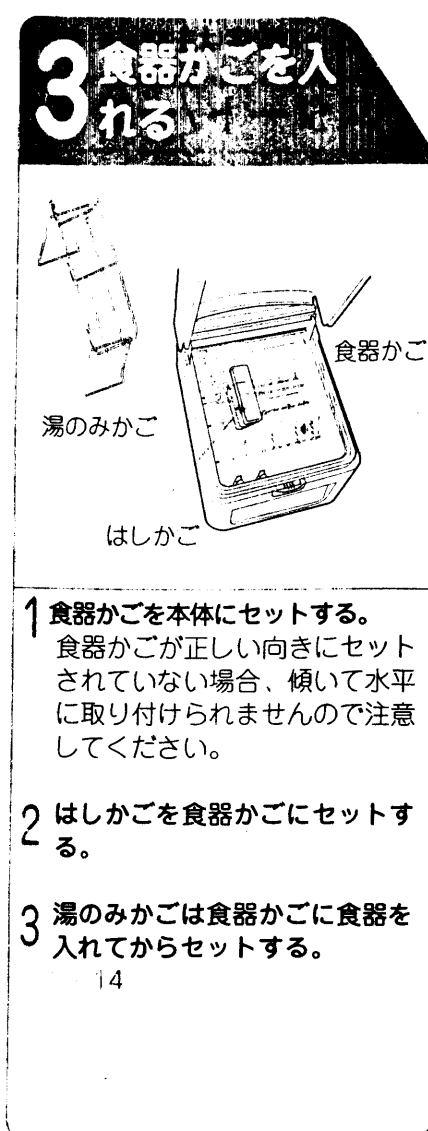 3 食器かごを入
れる
食器かご
湯のみかご
はしかご
1 食器かごを本体にセットする。
食器かごが正しい向きにセット
されていない場合、傾いて水平
に取り付けられませんので注意
してください。
2 はしかごを食器かごにセットす
る。
3 湯のみかごは食器かごに食器を
入れてからセットする。
14